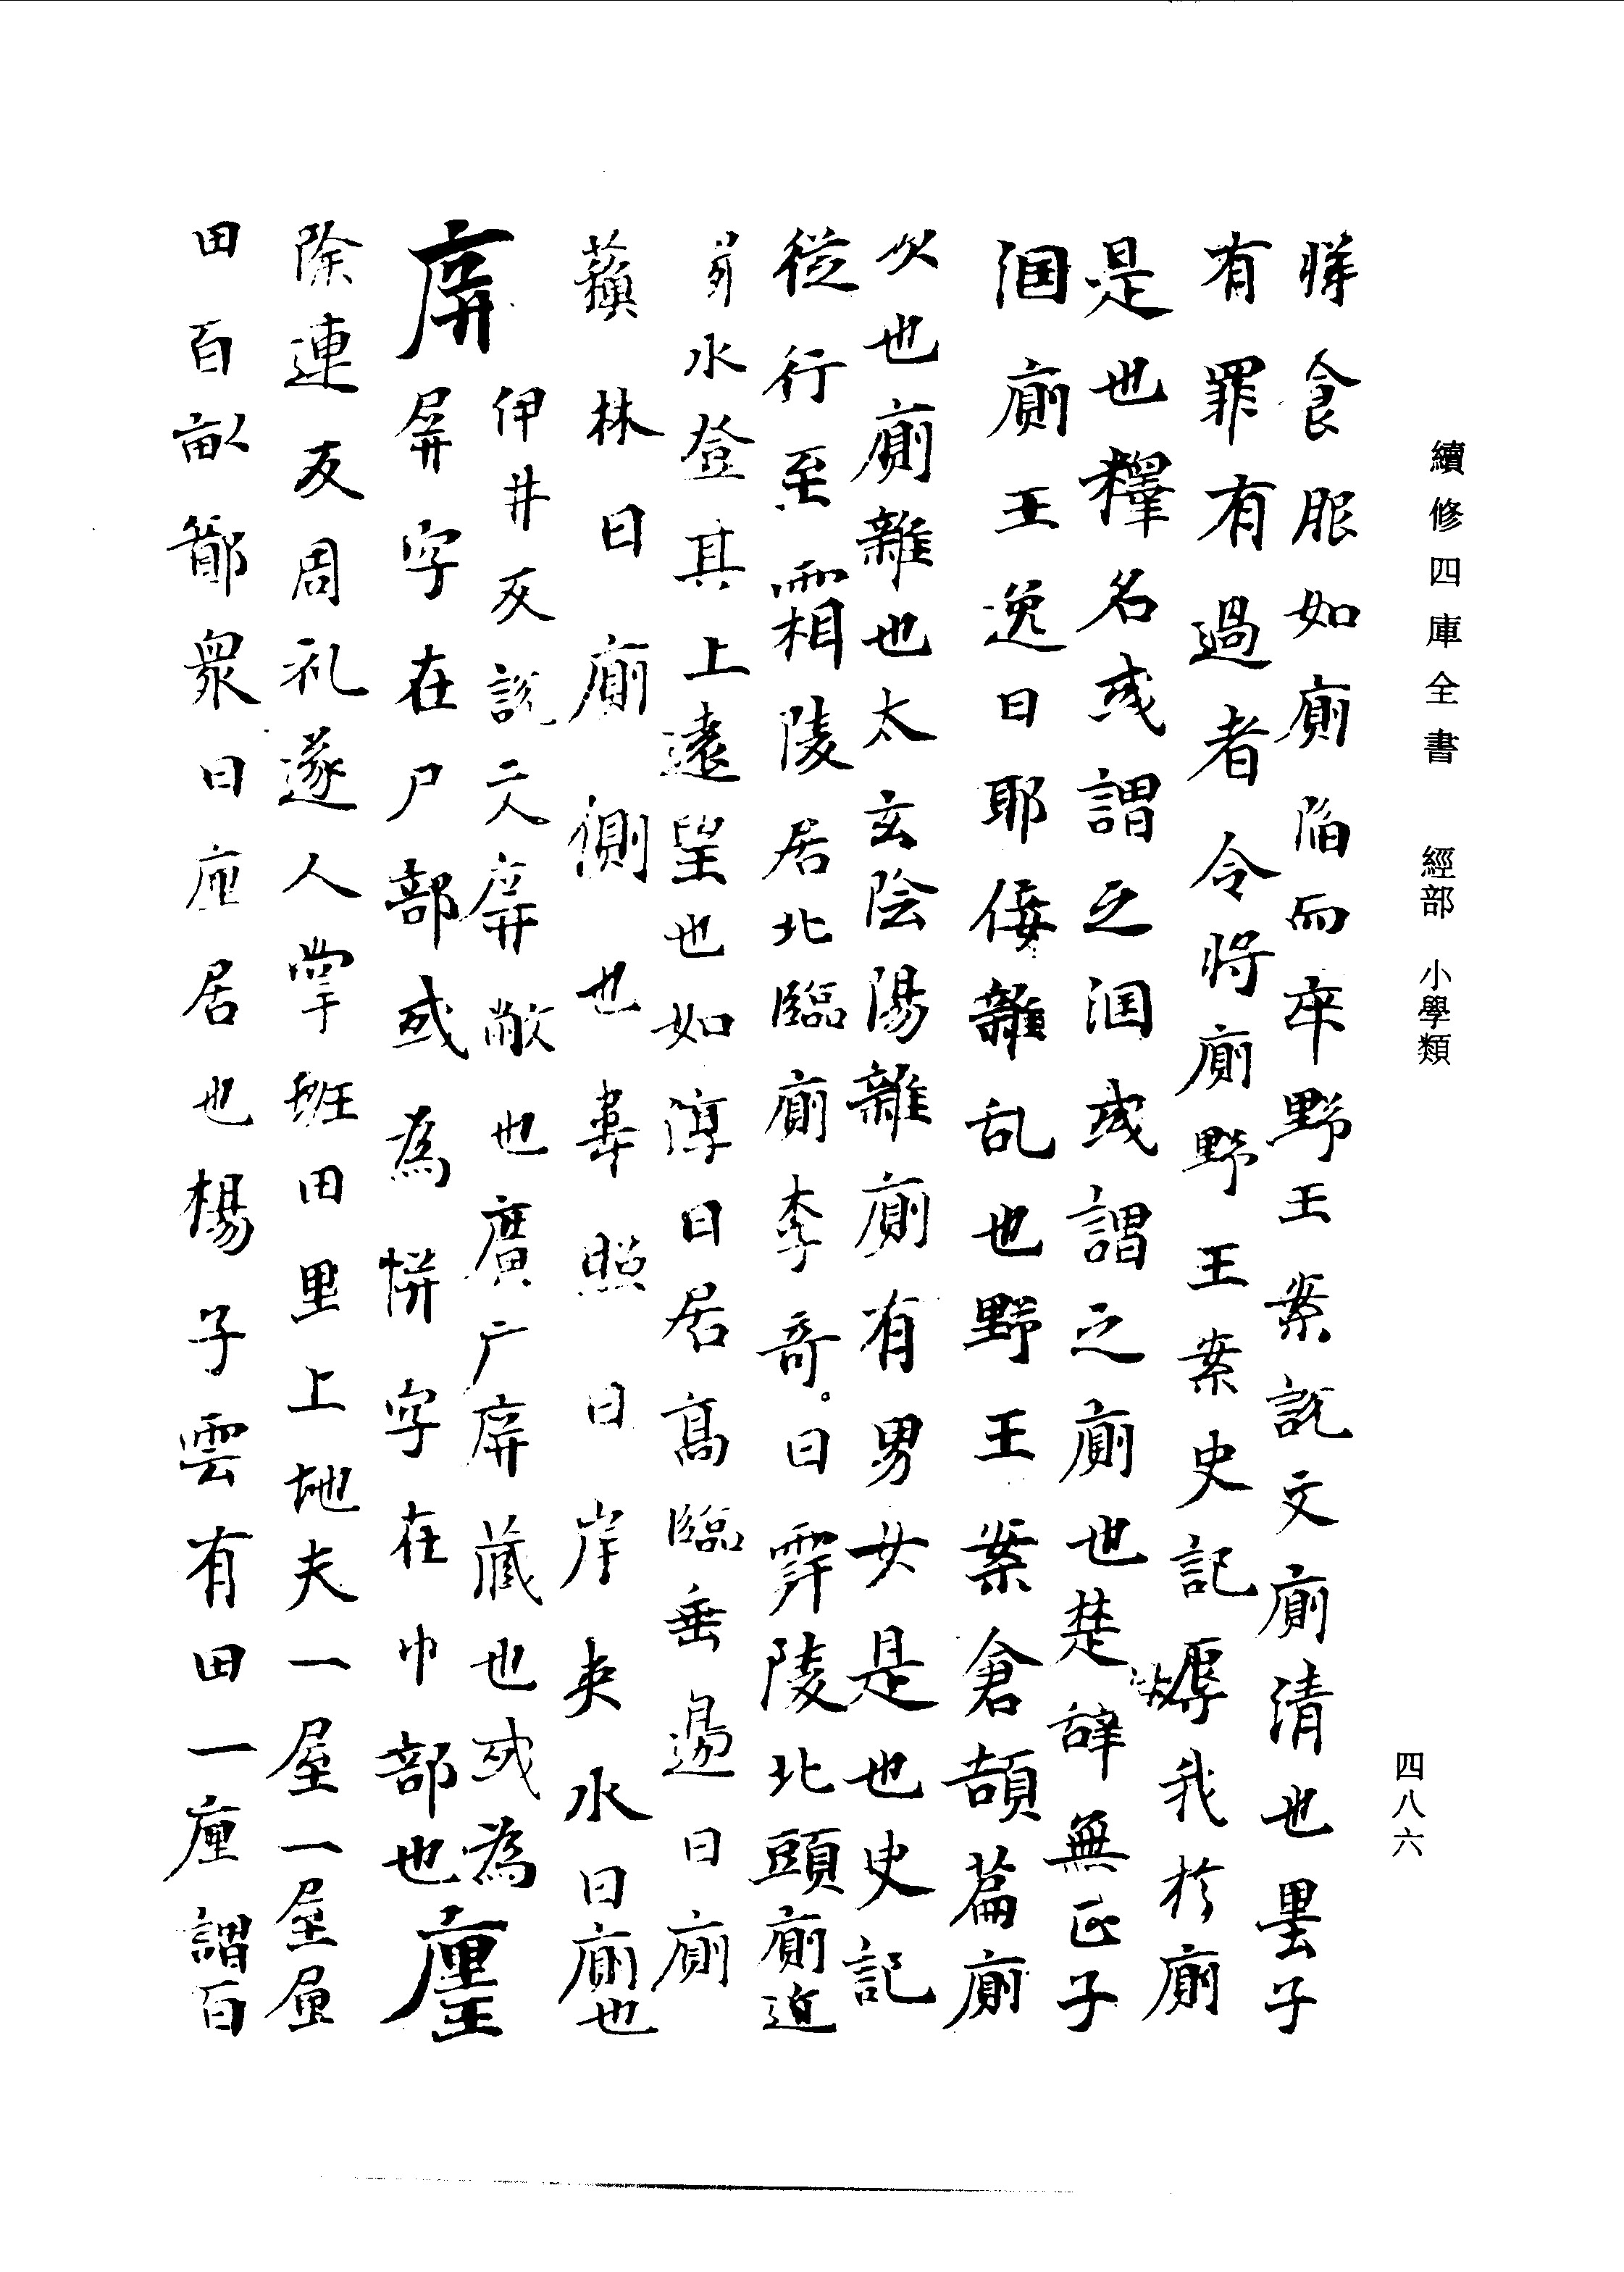 續修四庫全書 經部 小學類
四八六
將食脹如廁陷而卒野王案說文廁清也墨子
有罪有過者令將廁野王案史記辱我於廁
是也釋名或謂之溷或謂之廁也楚辞無正子
溷廁王逸曰耶倿雜乱也野王案倉頡篇廁
次也廁雜也太玄陰陽雜廁有男女是也史記
從行至霸陵居北臨廁李奇曰霸陵北頭廁近
水登其上遠望也如淳曰居髙臨垂邊曰廁
蘓林曰廁側也韋昭曰岸夾水曰廁也
庰伊井反說文庰敝也廣庰藏也或為
屏字在尸部或為帡字在巾部也㕓
除連反周礼遂人掌班田里上地夫一㕓
田百畝鄭衆曰㕓居也楊子雲有田一㕓謂百